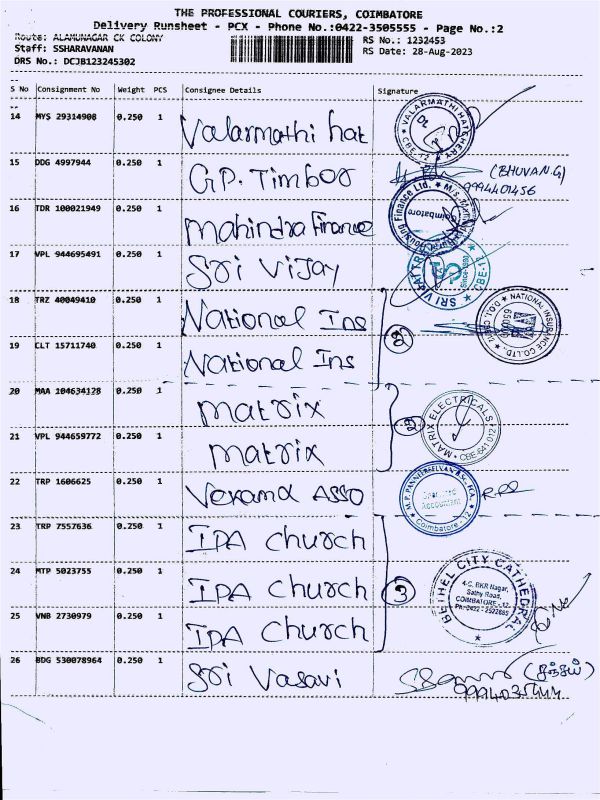 THE PROFESSIONAL COURIERS, COIMBATORE
Delivery Runsheet - PCX - Phone No.:0422-3505555 - Page No.:2
Route: ALAMUNAGAR CK COLONY
RS No.: 1232453
Staff: SSHARAVANAN
RS Date: 28-Aug-2023
DRS No.: DCJB123245302
S No Consignment No Weight PCS Consignee Details Signature
14 MYS 29314908 0.250 1 Valarmathi hat
VALARMATHI HATCHERY CBE-12
15 DDG 4997944 0.250 1 G.P. Timbor
(BHUVAN.G)
9994401456
16 TDR 100021949 0.250 1 Mahindra Finance
Housing Finance Ltd. Coimbatore
17 VPL 944695491 0.250 1 Sri Vijay
Since 1991 CBE-11
18 TRZ 40049410 0.250 1 National Ins
2
NATIONAL INSURANCE CO.LTD
19 CLT 15711740 0.250 1 National Ins
20 MAA 104634128 0.250 1 matrix
2
MATRIX ELECTRICALS CBE-641 012
21 VPL 944659772 0.250 1 matrix
22 TRP 1606625 0.250 1
Chartered
Accountant
Coimbatore - 12
23 TRP 7557636 0.250 1 IPA church
24 MTP 5023755 0.250 1 IPA church
3
BETHEL CITY CATHEDRAL
4-C, BKR Nagar,
Sathy Road,
COIMBATORE - 12.
25 VNB 2730979 0.250 1 IPA church
26 BDG 530078964 0.250 1 Sri Vasavi